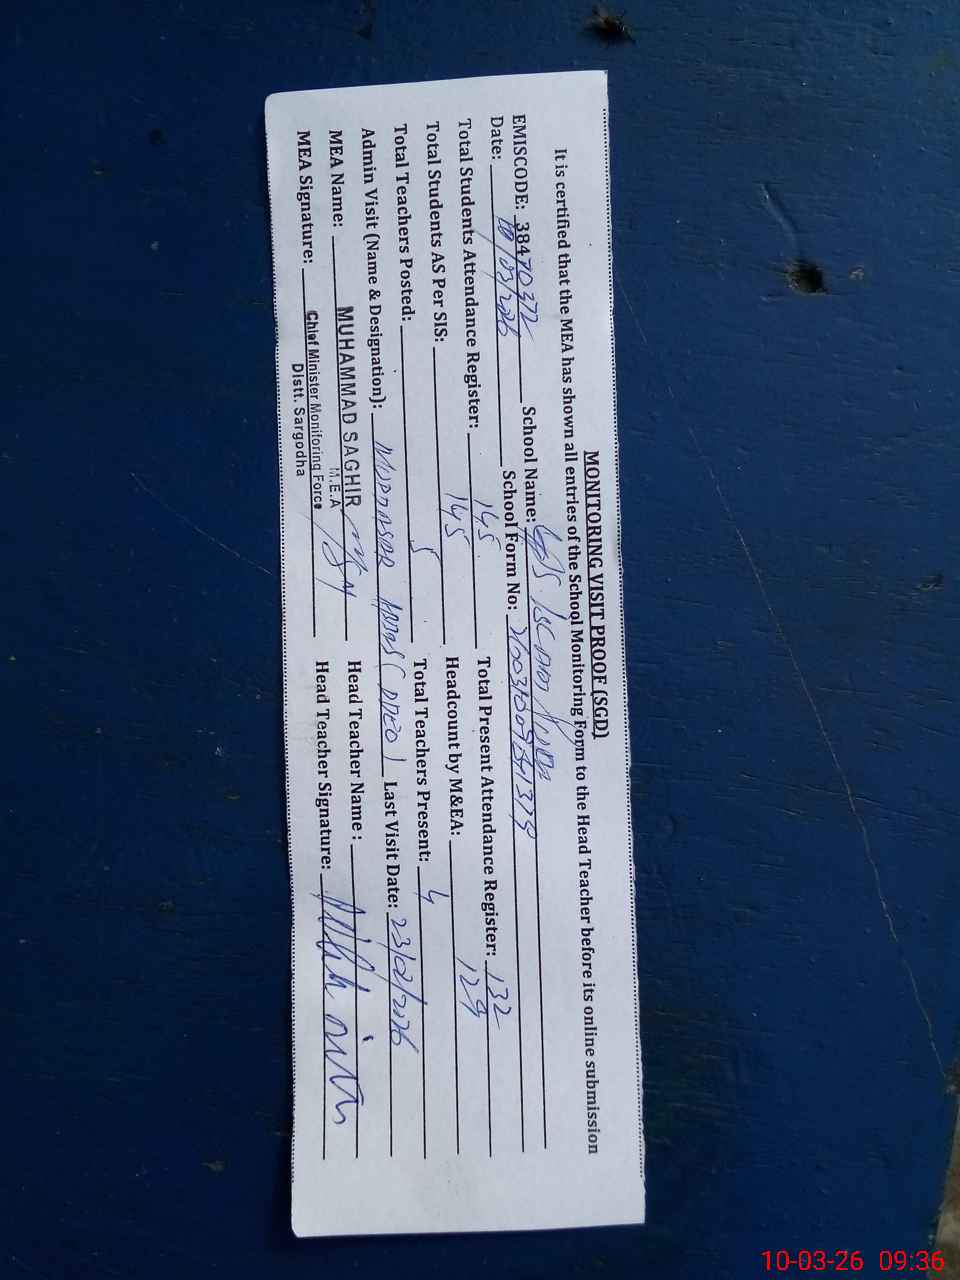 MONITORING VISIT PROOF (SGD)
It is certified that the MEA has shown all entries of the School Monitoring Form to the Head Teacher before its online submission
EMISCODE: 38470372 School Name: GPS
Date: 10/03/2026 School Form No:
Total Students Attendance Register: 145 Total Present Attendance Register: 132
Total Students AS Per SIS: 145 Headcount by M&EA: 129
Total Teachers Posted: 5 Total Teachers Present: 4
Admin Visit (Name & Designation): Last Visit Date: 23/02/2026
MEA Name: MUHAMMAD SAGHIR Head Teacher Name :
M.E.A
MEA Signature: Chief Minister Monitoring Force Head Teacher Signature:
Distt. Sargodha
10-03-26 09:36